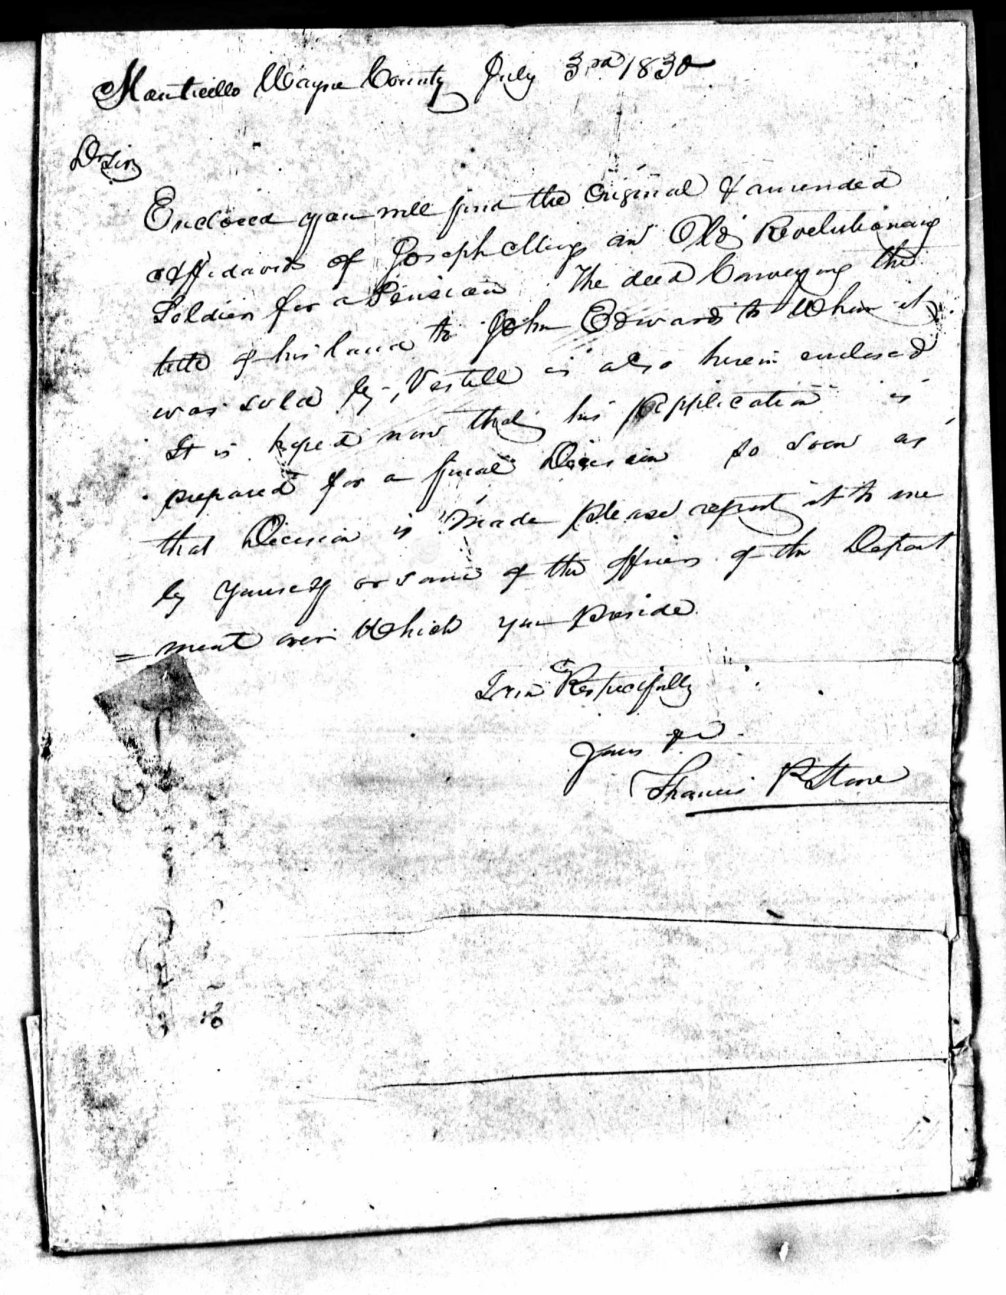 Monticello Wayne County July 3rd 1830
Dr Sir
Enclosed you will find the Original & amended
affidavits of Joseph an Old Revolutionary
Soldier for a Pension The deed Conveying the
title of his land to John Edwards to Whom it
was sold by Vestill is also herein enclosed
It is hoped now that his Application is
prepared for a final Decision so soon as
that Decision is made please report it to me
by yourself or some of the officers of the Depart
= ment over Which you preside
I am Respectfully
Yours &c
Francis R Stone